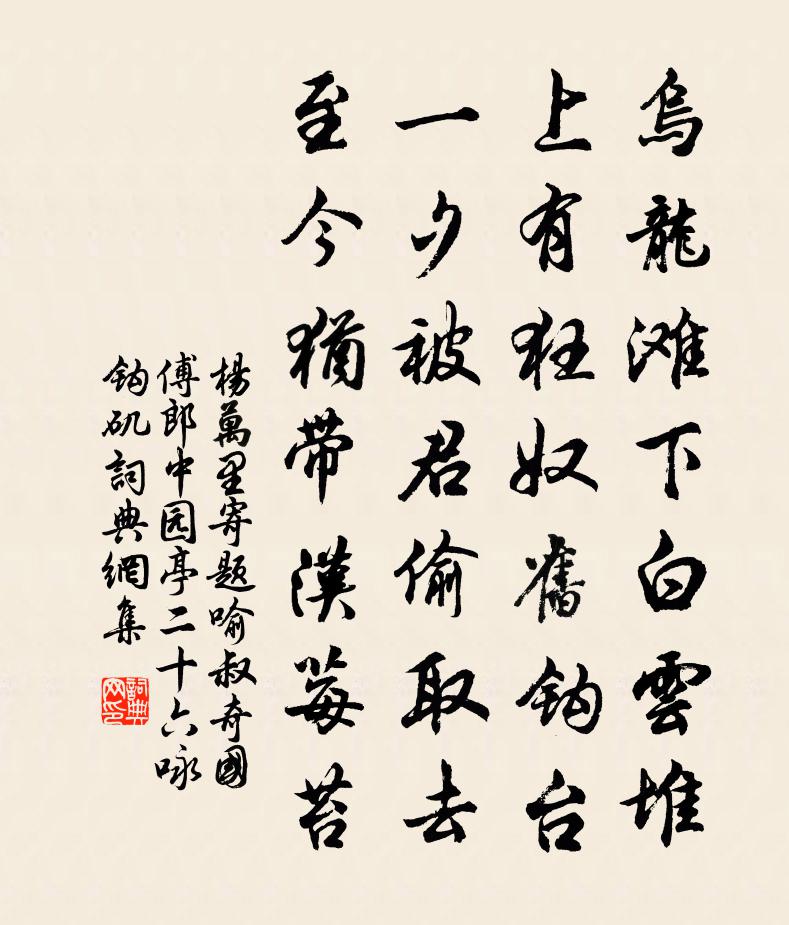 烏龍滩下白雲堆
上有狂奴舊鈎台
一夕被君偷取去
至今猶带漢莓苔
楊萬里寄题喻叔奇國
傅郎中园亭二十六咏
鈎矶詞典網集
詞典网印